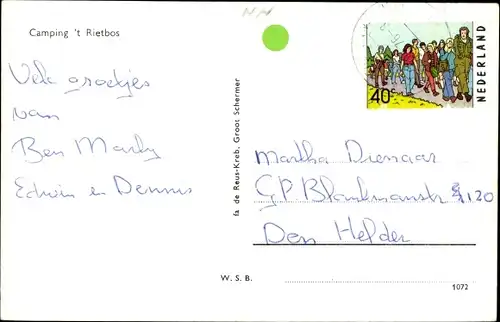 Camping 't Rietbos
Vele groetjes
van
Ben Marly
Edwin en Dennis
fa de Reus-Kreb, Groot Schermer
W. S. B.
40c
NEDERLAND
Martha Dienaar
G.P. Blankmanstr 120
Den Helder
1072